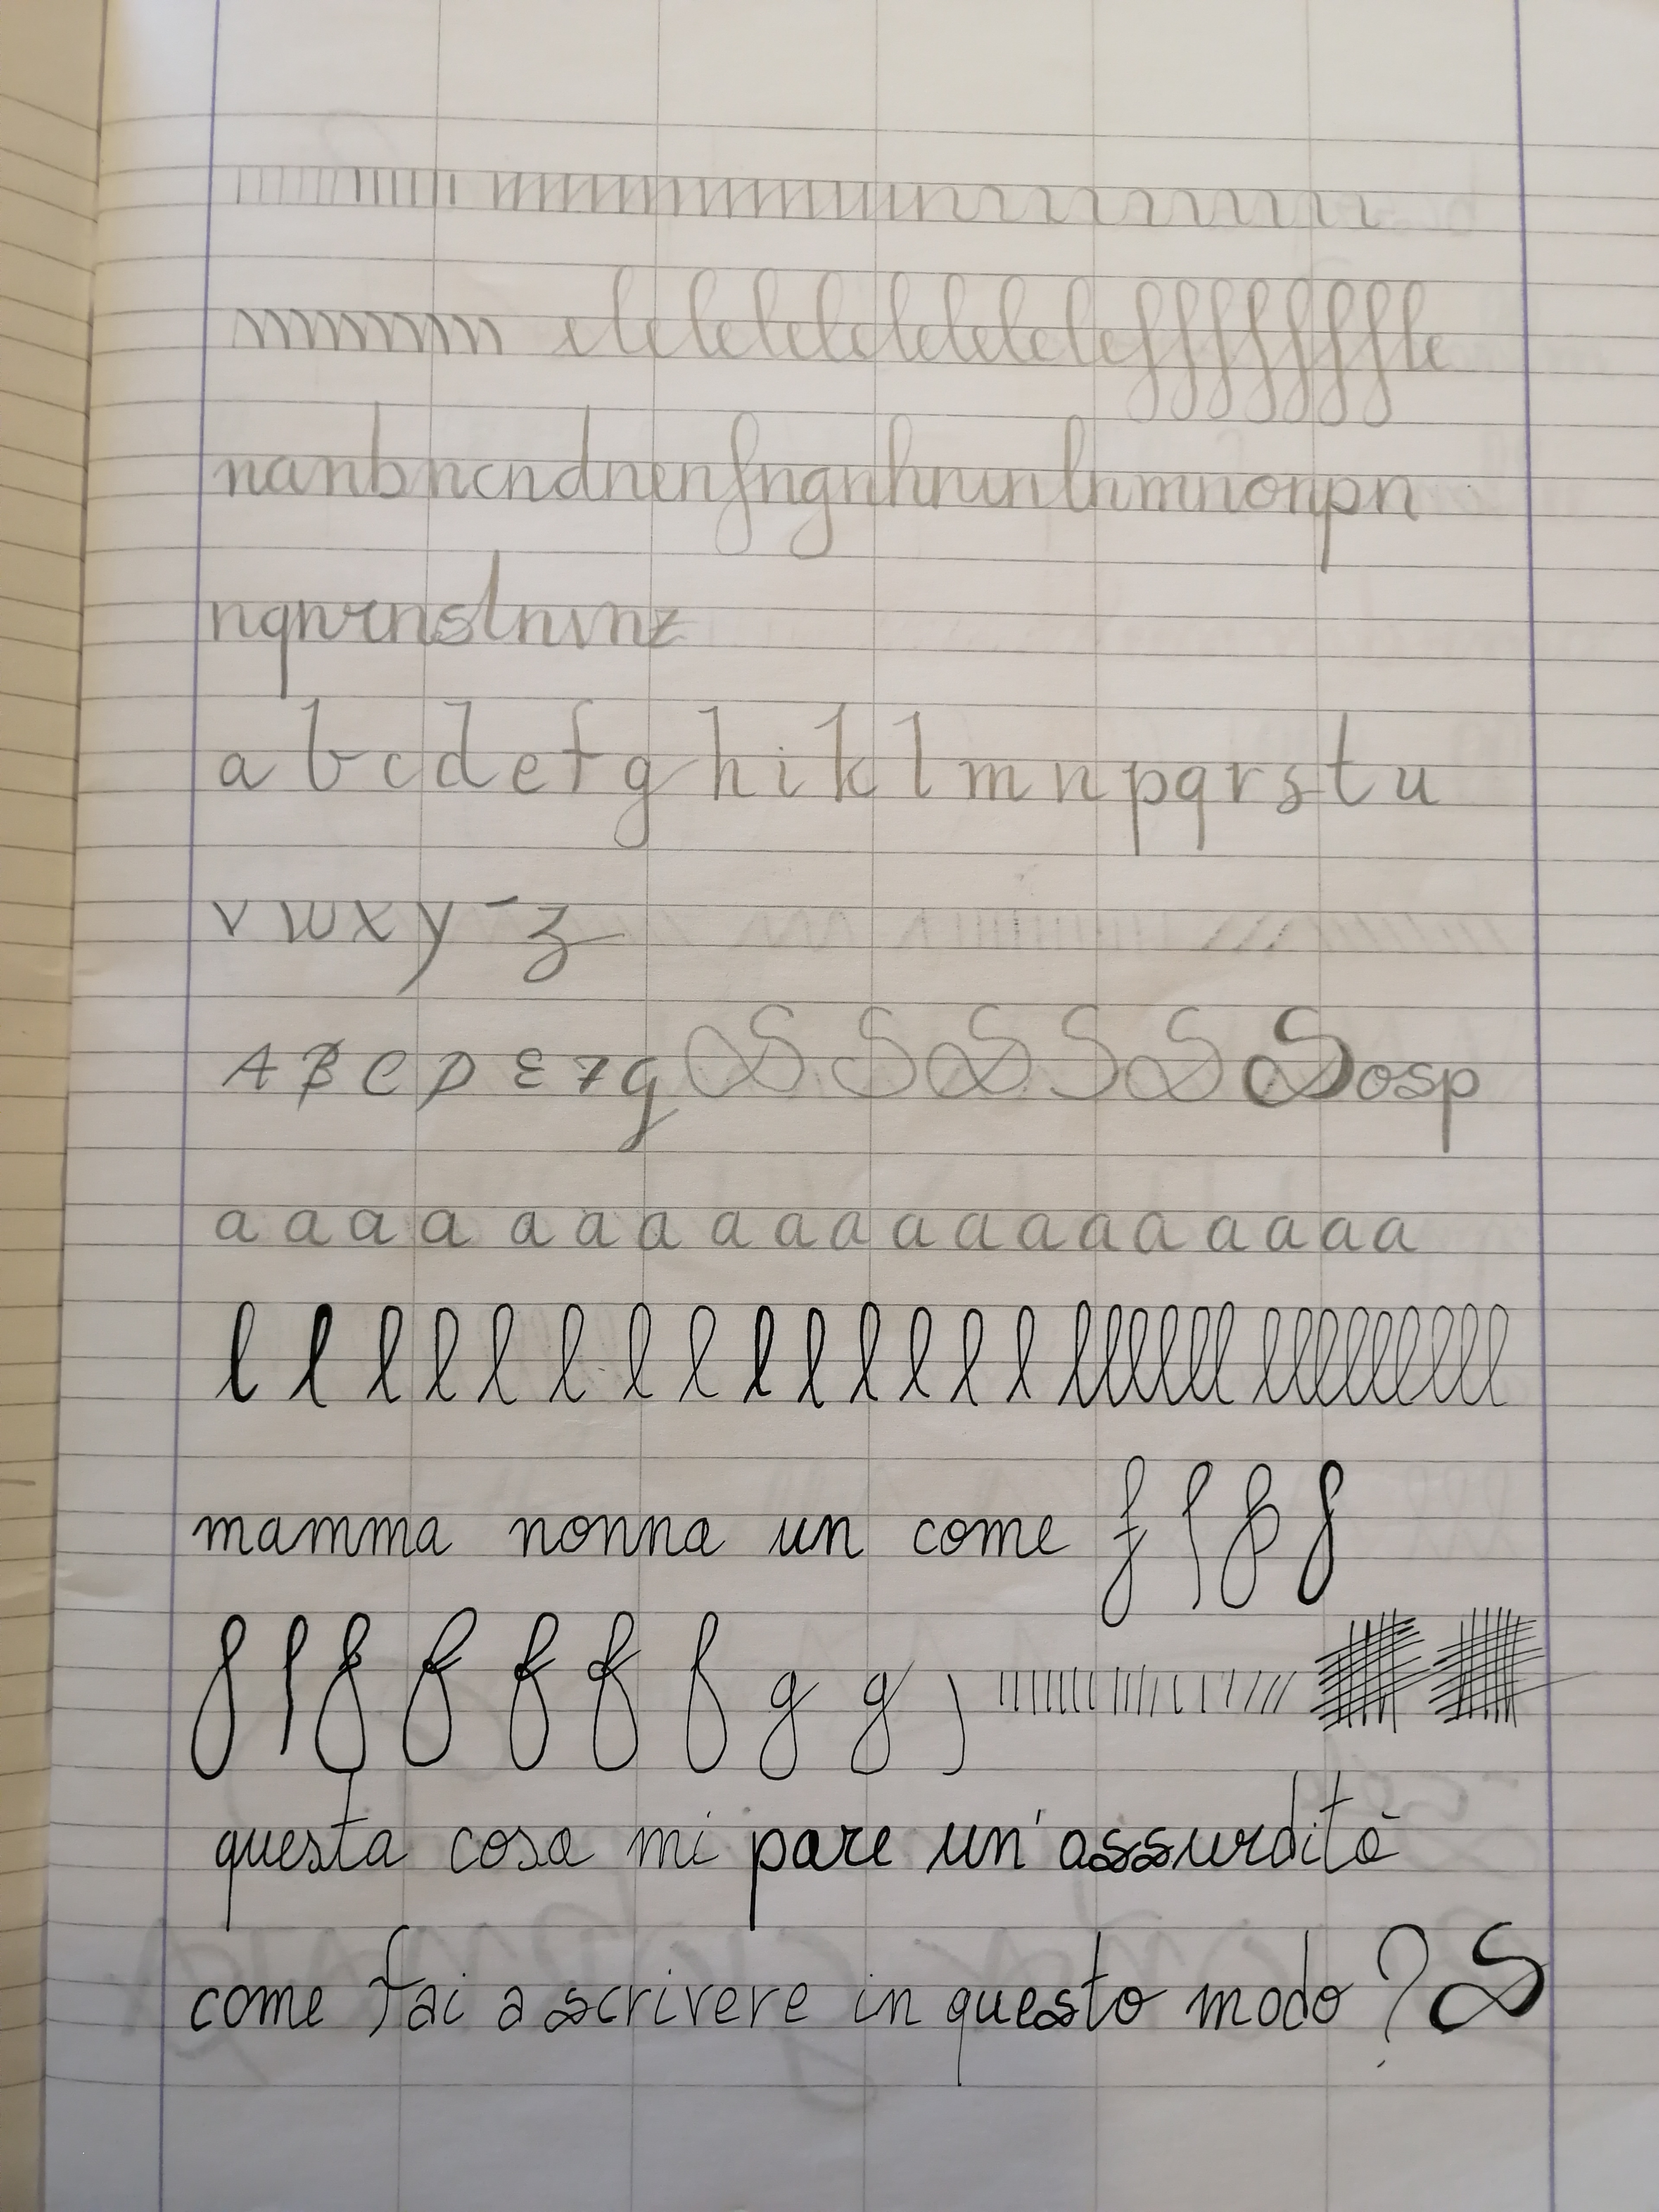 elelelelelelelelelefffffffle
nanbncndnenfngnhninlnmnonpn
nqnrnstnvnz
a b c d e f g h i k l m n p q r s t u
v w x y - z
A B C D E F G S S S S S S osp
a a a a a a a a a a a a a a a a a a
l l l l l l l l l l l l l l llllll lllllllll
mamma nonna un come f f f f
f f f f f f f g g j
questa cosa mi pare un'assurdità
come fai a scrivere in questo modo? S